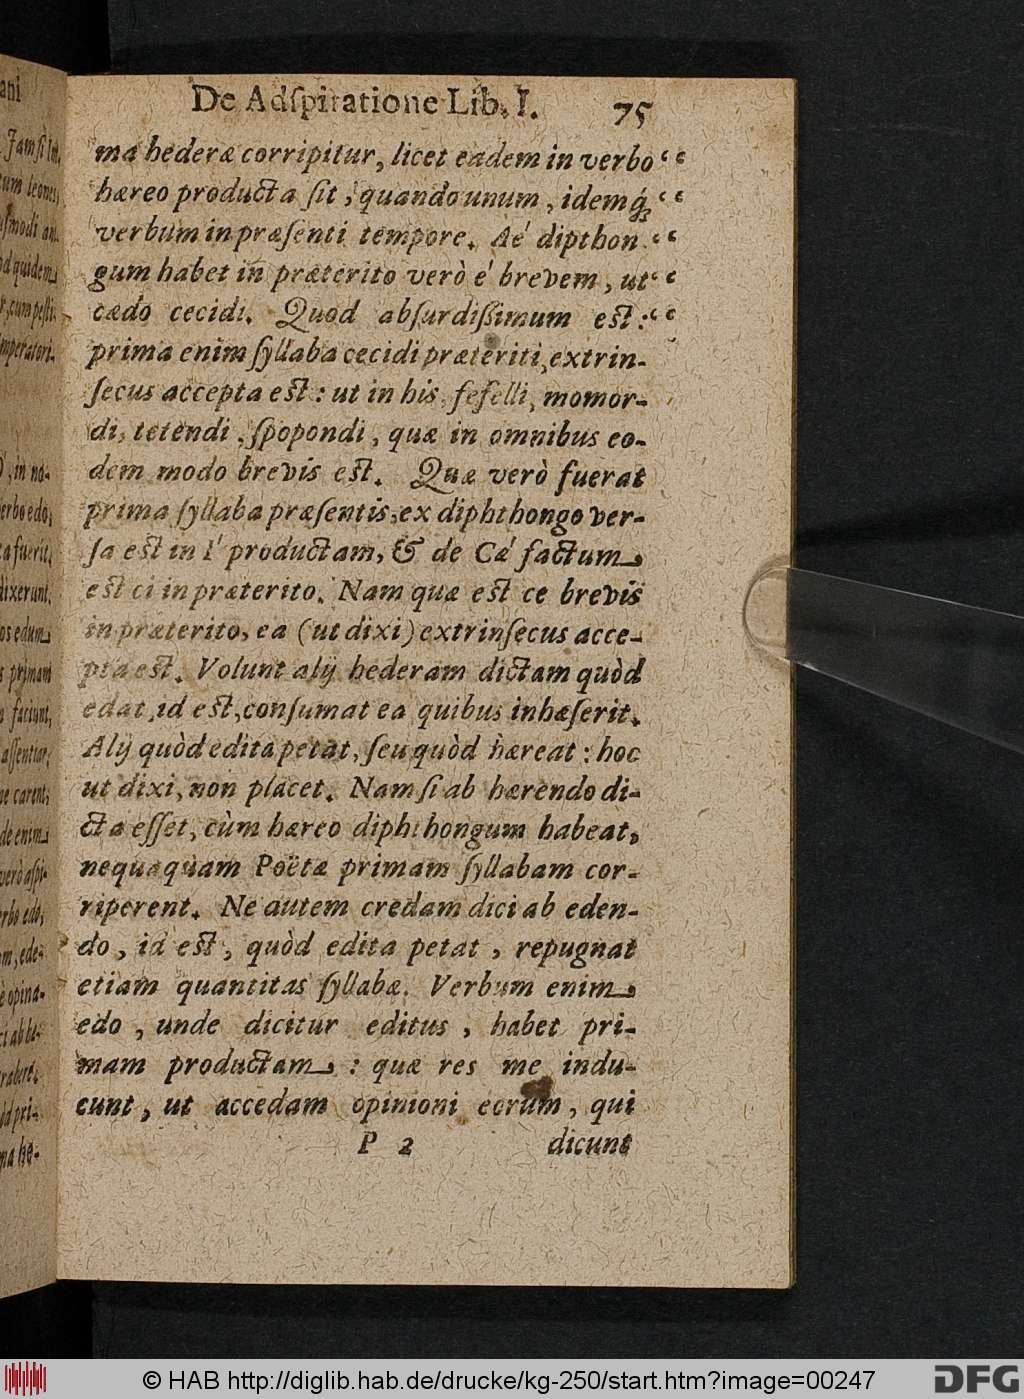 De Adſpiratione Lib. I. 75
ma hederæ corripitur, licet eadem in verbo “
hæreo producta ſit, quando unum, idemq́; “
verbum in præſenti tempore. Aé dipthon- “
gum habet in præterito verò é brevem, ut “
cædo cecidi. Quod abſurdiſſimum eſt: “
prima enim ſyllaba cecidi præteriti, extrin-
ſecus accepta eſt: ut in his, fefelli, momor-
di, tetendi, ſpopondi, quæ in omnibus eo-
dem modo brevis eſt. Quæ verò fuerat
prima ſyllaba præſentis, ex diphthongo ver-
ſa eſt in í productam, & de Cæ factum
eſt ci in præterito. Nam quæ eſt ce brevis
in præterito, ea (ut dixi) extrinſecus acce-
pta eſt. Volunt alij hederam dictam quòd
edat, id eſt, conſumat ea quibus inhæſerit.
Alij quòd edita petat, ſeu quòd hæreat: hoc
ut dixi, non placet. Nam ſi ab hærendo di-
cta eſſet, cùm hæreo diphthongum habeat,
nequaquam Poëtæ primam ſyllabam cor-
riperent. Ne autem credam dici ab eden-
do, id eſt, quòd edita petat, repugnat
etiam quantitas ſyllabæ. Verbum enim
edo, unde dicitur editus, habet pri-
mam productam: quæ res me indu-
cunt, ut accedam opinioni eorum, qui
P 2 dicunt
© HAB http://diglib.hab.de/drucke/kg-250/start.htm?image=00247
DFG